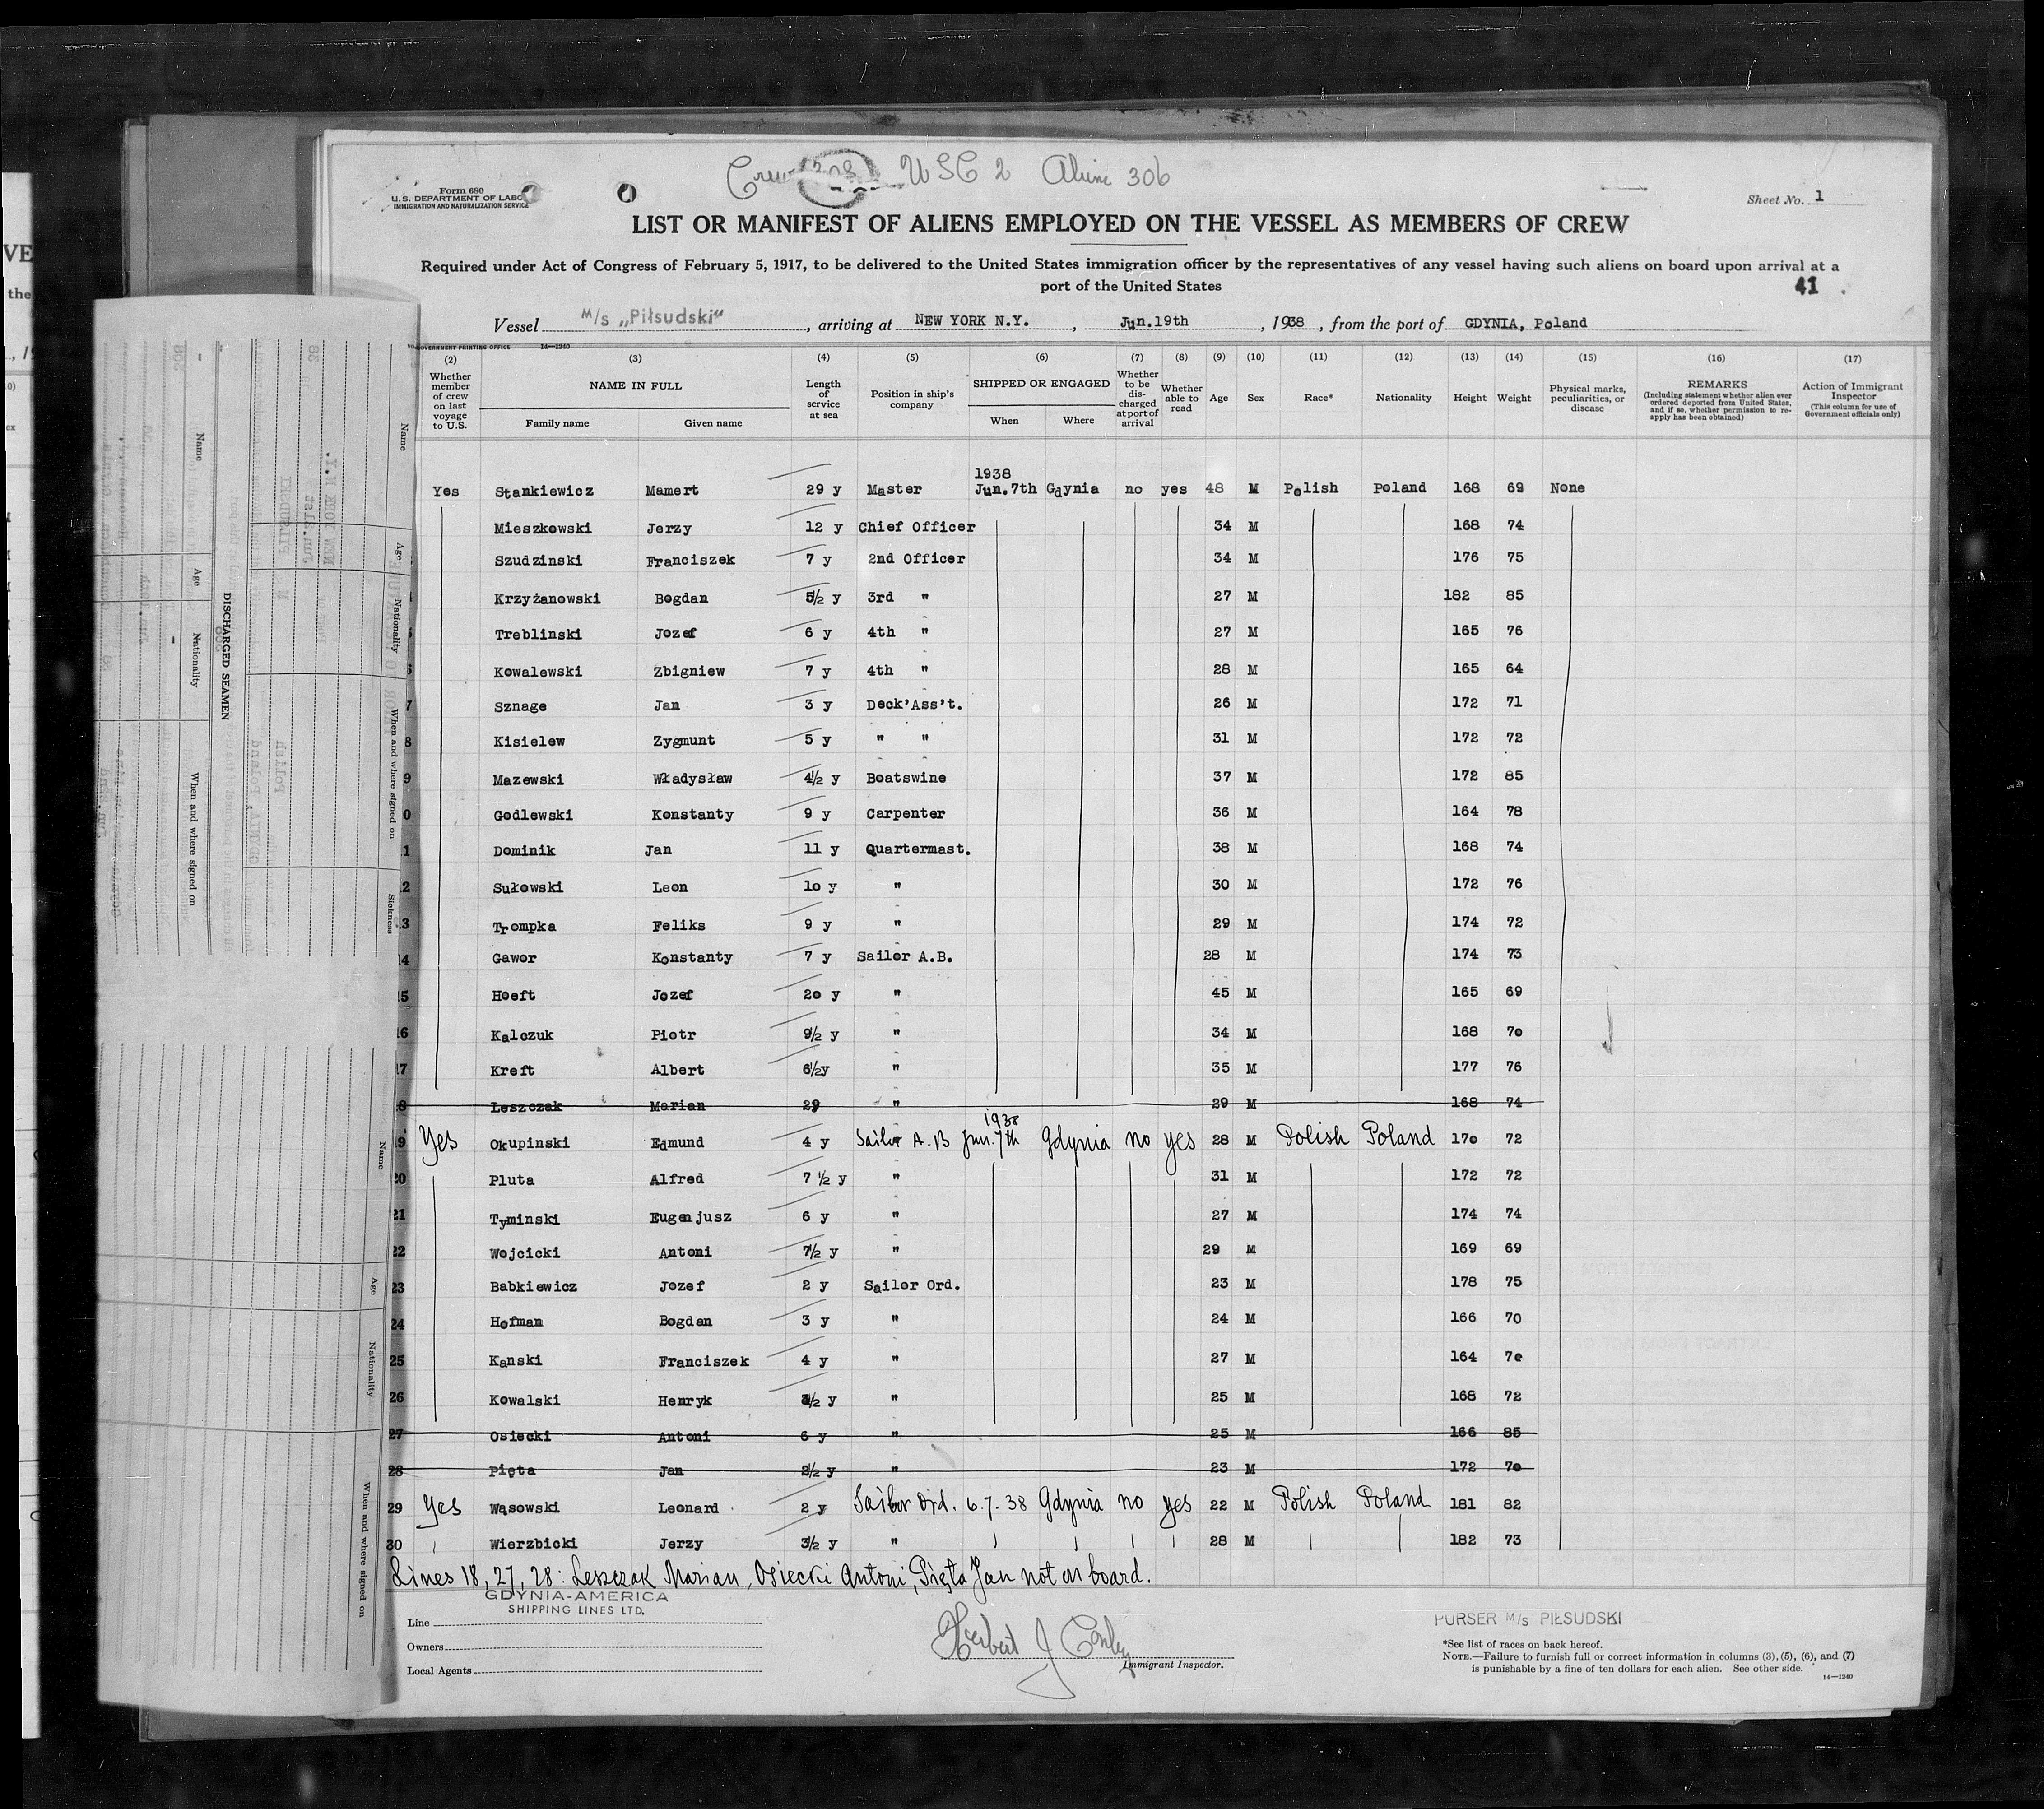 Crew 308 USC 2 Aliens 306
Form 680
U.S. DEPARTMENT OF LABOR
IMMIGRATION AND NATURALIZATION SERVICE
Sheet No. 1
LIST OR MANIFEST OF ALIENS EMPLOYED ON THE VESSEL AS MEMBERS OF CREW
Required under Act of Congress of February 5, 1917, to be delivered to the United States immigration officer by the representatives of any vessel having such aliens on board upon arrival at a
port of the United States
41
Vessel M/s „Piłsudski", arriving at NEW YORK N.Y., Jun.19th, 1938, from the port of GDYNIA, Poland
GOVERNMENT PRINTING OFFICE 14—1240
(2) (3) (4) (5) (6) (7) (8) (9) (10) (11) (12) (13) (14) (15) (16) (17)
Whether member of crew on last voyage to U.S. NAME IN FULL Family name Given name Length of service at sea Position in ship's company SHIPPED OR ENGAGED When Where Whether to be discharged at port of arrival Whether able to read Age Sex Race* Nationality Height Weight Physical marks, peculiarities, or disease REMARKS (Including statement whether alien ever ordered deported from United States, and if so, whether permission to reapply has been obtained) Action of Immigrant Inspector (This column for use of Government officials only)
1938
Yes Stankiewicz Mamert 29 y Master Jun.7th Gdynia no yes 48 M Polish Poland 168 69 None
Mieszkowski Jerzy 12 y Chief Officer 34 M 168 74
Szudzinski Franciszek 7 y 2nd Officer 34 M 176 75
Krzyżanowski Bogdan 5½ y 3rd " 27 M 182 85
Treblinski Jozef 6 y 4th " 27 M 165 76
Kowalewski Zbigniew 7 y 4th " 28 M 165 64
7 Sznage Jan 3 y Deck'Ass't. 26 M 172 71
8 Kisielew Zygmunt 5 y " " 31 M 172 72
9 Mazewski Władysław 4½ y Boatswine 37 M 172 85
0 Godlewski Konstanty 9 y Carpenter 36 M 164 78
1 Dominik Jan 11 y Quartermast. 38 M 168 74
2 Sułowski Leon 10 y " 30 M 172 76
3 Trompka Feliks 9 y " 29 M 174 72
4 Gawor Konstanty 7 y Sailor A.B. 28 M 174 73
5 Hoeft Jozef 20 y " 45 M 165 69
16 Kalczuk Piotr 9½ y " 34 M 168 70
17 Kreft Albert 6½y " 35 M 177 76
8 Leszczak Marian 29 " 29 M 168 74
1938
19 Yes Okupinski Edmund 4 y Sailor A.B Jun.7th Gdynia no yes 28 M Polish Poland 170 72
20 Pluta Alfred 7 ½ y " 31 M 172 72
21 Tyminski Eugenjusz 6 y " 27 M 174 74
22 Wojcicki Antoni 7½ y " 29 M 169 69
23 Babkiewicz Jozef 2 y Sailor Ord. 23 M 178 75
24 Hofman Bogdan 3 y " 24 M 166 70
25 Kanski Franciszek 4 y " 27 M 164 70
26 Kowalski Henryk ½ y " 25 M 168 72
27 Osiecki Antoni 6 y " 25 M 166 85
28 Pięta Jan 2½ y " 23 M 172 70
29 Yes Wąsowski Leonard 2 y Sailor Ord. 6.7.38 Gdynia no yes 22 M Polish Poland 181 82
30 Wierzbicki Jerzy 3½ y " 28 M 182 73
Lines 18, 27, 28: Leszczak Marian, Osiecki Antoni, Pięta Jan not on board.
GDYNIA-AMERICA
SHIPPING LINES LTD.
Line
Owners
Local Agents
Herbert J Conley
Immigrant Inspector.
PURSER M/s PIŁSUDSKI
*See list of races on back hereof.
NOTE.—Failure to furnish full or correct information in columns (3), (5), (6), and (7)
is punishable by a fine of ten dollars for each alien. See other side.
14—1240
Name Age Nationality When and where signed on Sickness
DISCHARGED SEAMEN
Name Age Nationality When and where signed on
Name Age Nationality When and where signed on
VE
the